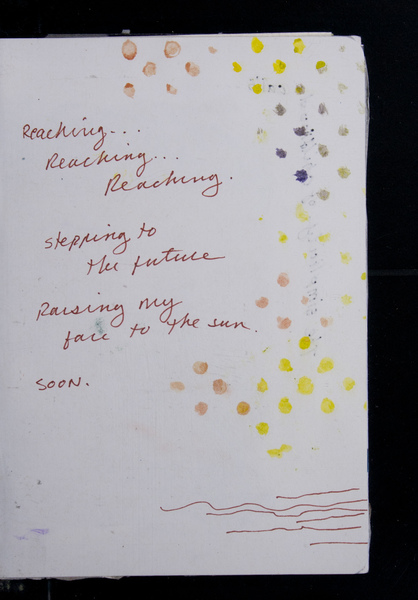 Reaching...
Reaching...
Reaching.
stepping to
the future
Raising my
face to the sun.
SOON.